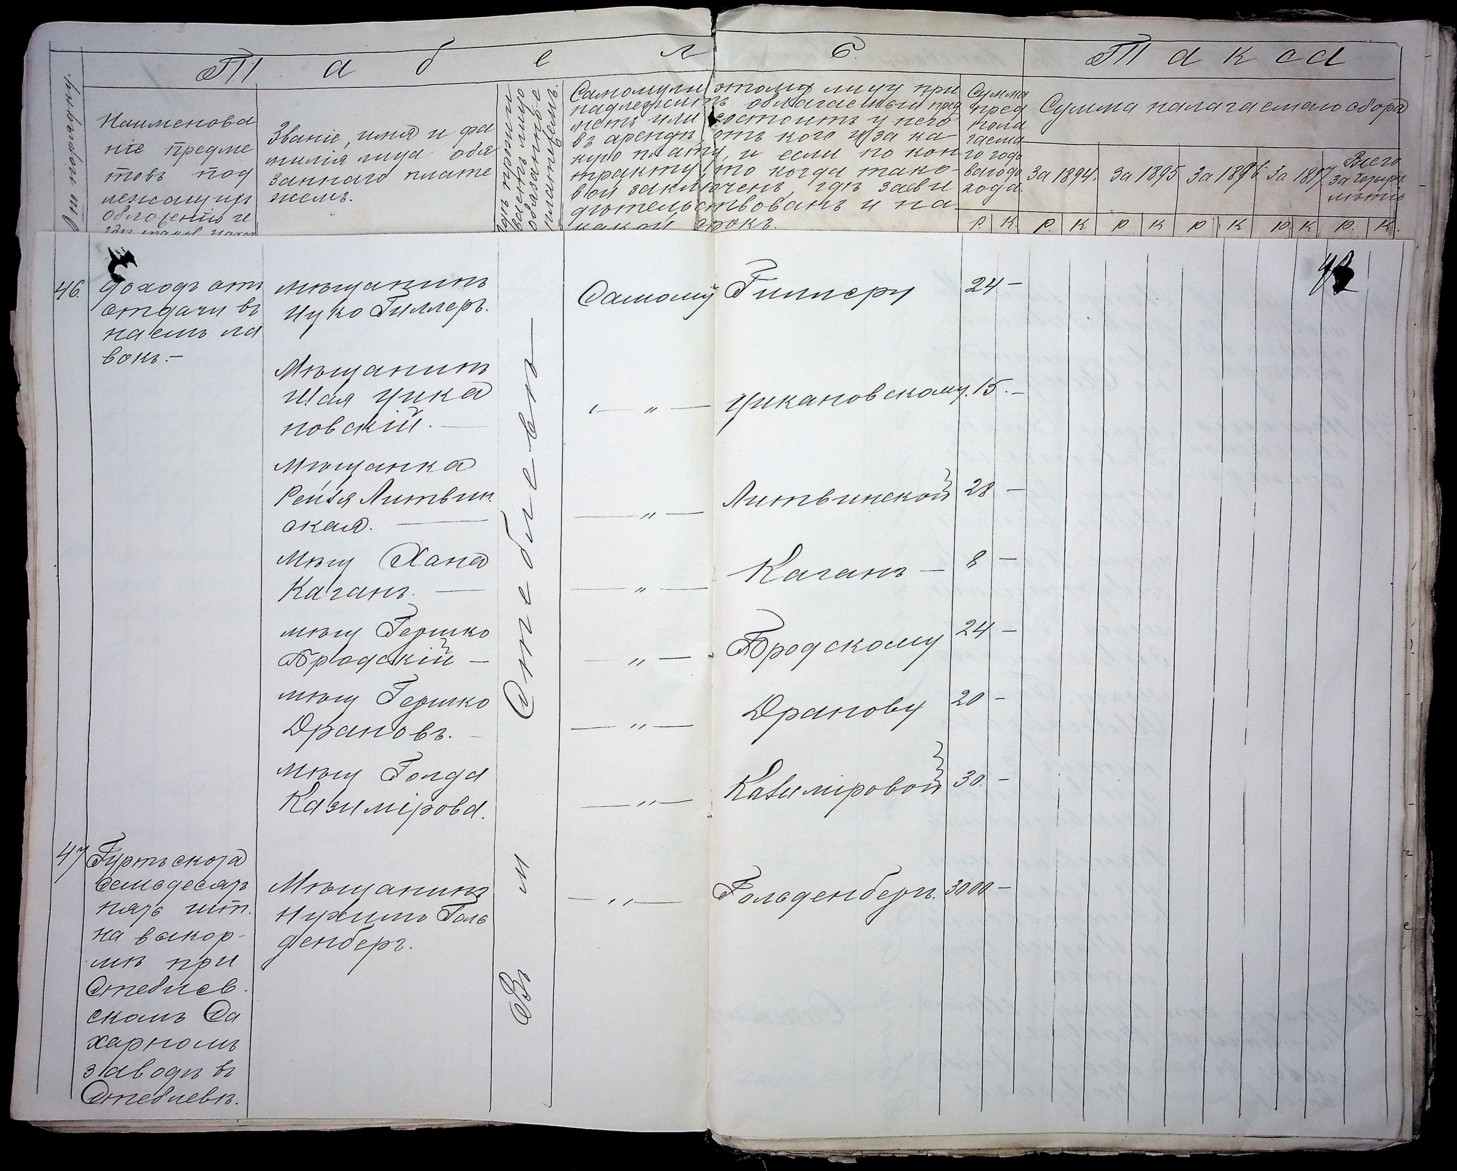 Табель
Такса
Наименова
ніе предме
товъ под
лежащихъ
обложенію и
Званіе, имя и фа
милія лица обя
заннаго плате
жемъ.
Самому ли этому лицу при
надлежитъ облагаемый пред
метъ или состоитъ у него
въ арендѣ, отъ кого и за ка
кую плату, и если по кон
тракту, то когда тако
вой заключенъ, гдѣ засви
дѣтельствованъ и на
какой срокъ.
Сумма
пред
пола
гаема
го годо
ваго до
хода.
Сумма налагаемаго сбора
За 1894. За 1895 За 1896 За 1897 Всего за четыре
р. к. р. к р к р к р. к р. к.
46. Доходъ отъ
отдачи въ
наемъ ла
вокъ.—
Мѣщанинъ
Ицко Гиллеръ.
Самому Гиллеру 24 —
43
Мѣщанинъ
Шая Цика
новскій. —
" — Цикановскому. 15. —
Мѣщанка
Рейзя Литвин
ская. —
— " — Литвинской 28 —
Мѣщ Хана
Каганъ. —
— " — Каганъ — 8 —
мѣщ Гершко
Бродскій —
— " — Бродскому 24 —
мѣщ Гершко
Драновъ. —
— " — Дранову 20 —
мѣщ Голда
Казимірова.
— " — Казиміровой 30. —
Въ м Стеблевъ
47 Гуртъ скота
семьдесятъ
пять шт.
на выкор-
мѣ при
Стеблев.
скомъ Са
харномъ
заводѣ въ
Стеблевѣ.
Мѣщанинъ
Нухимъ Голь
денберг.
— " — Гольденберг. 3000 —